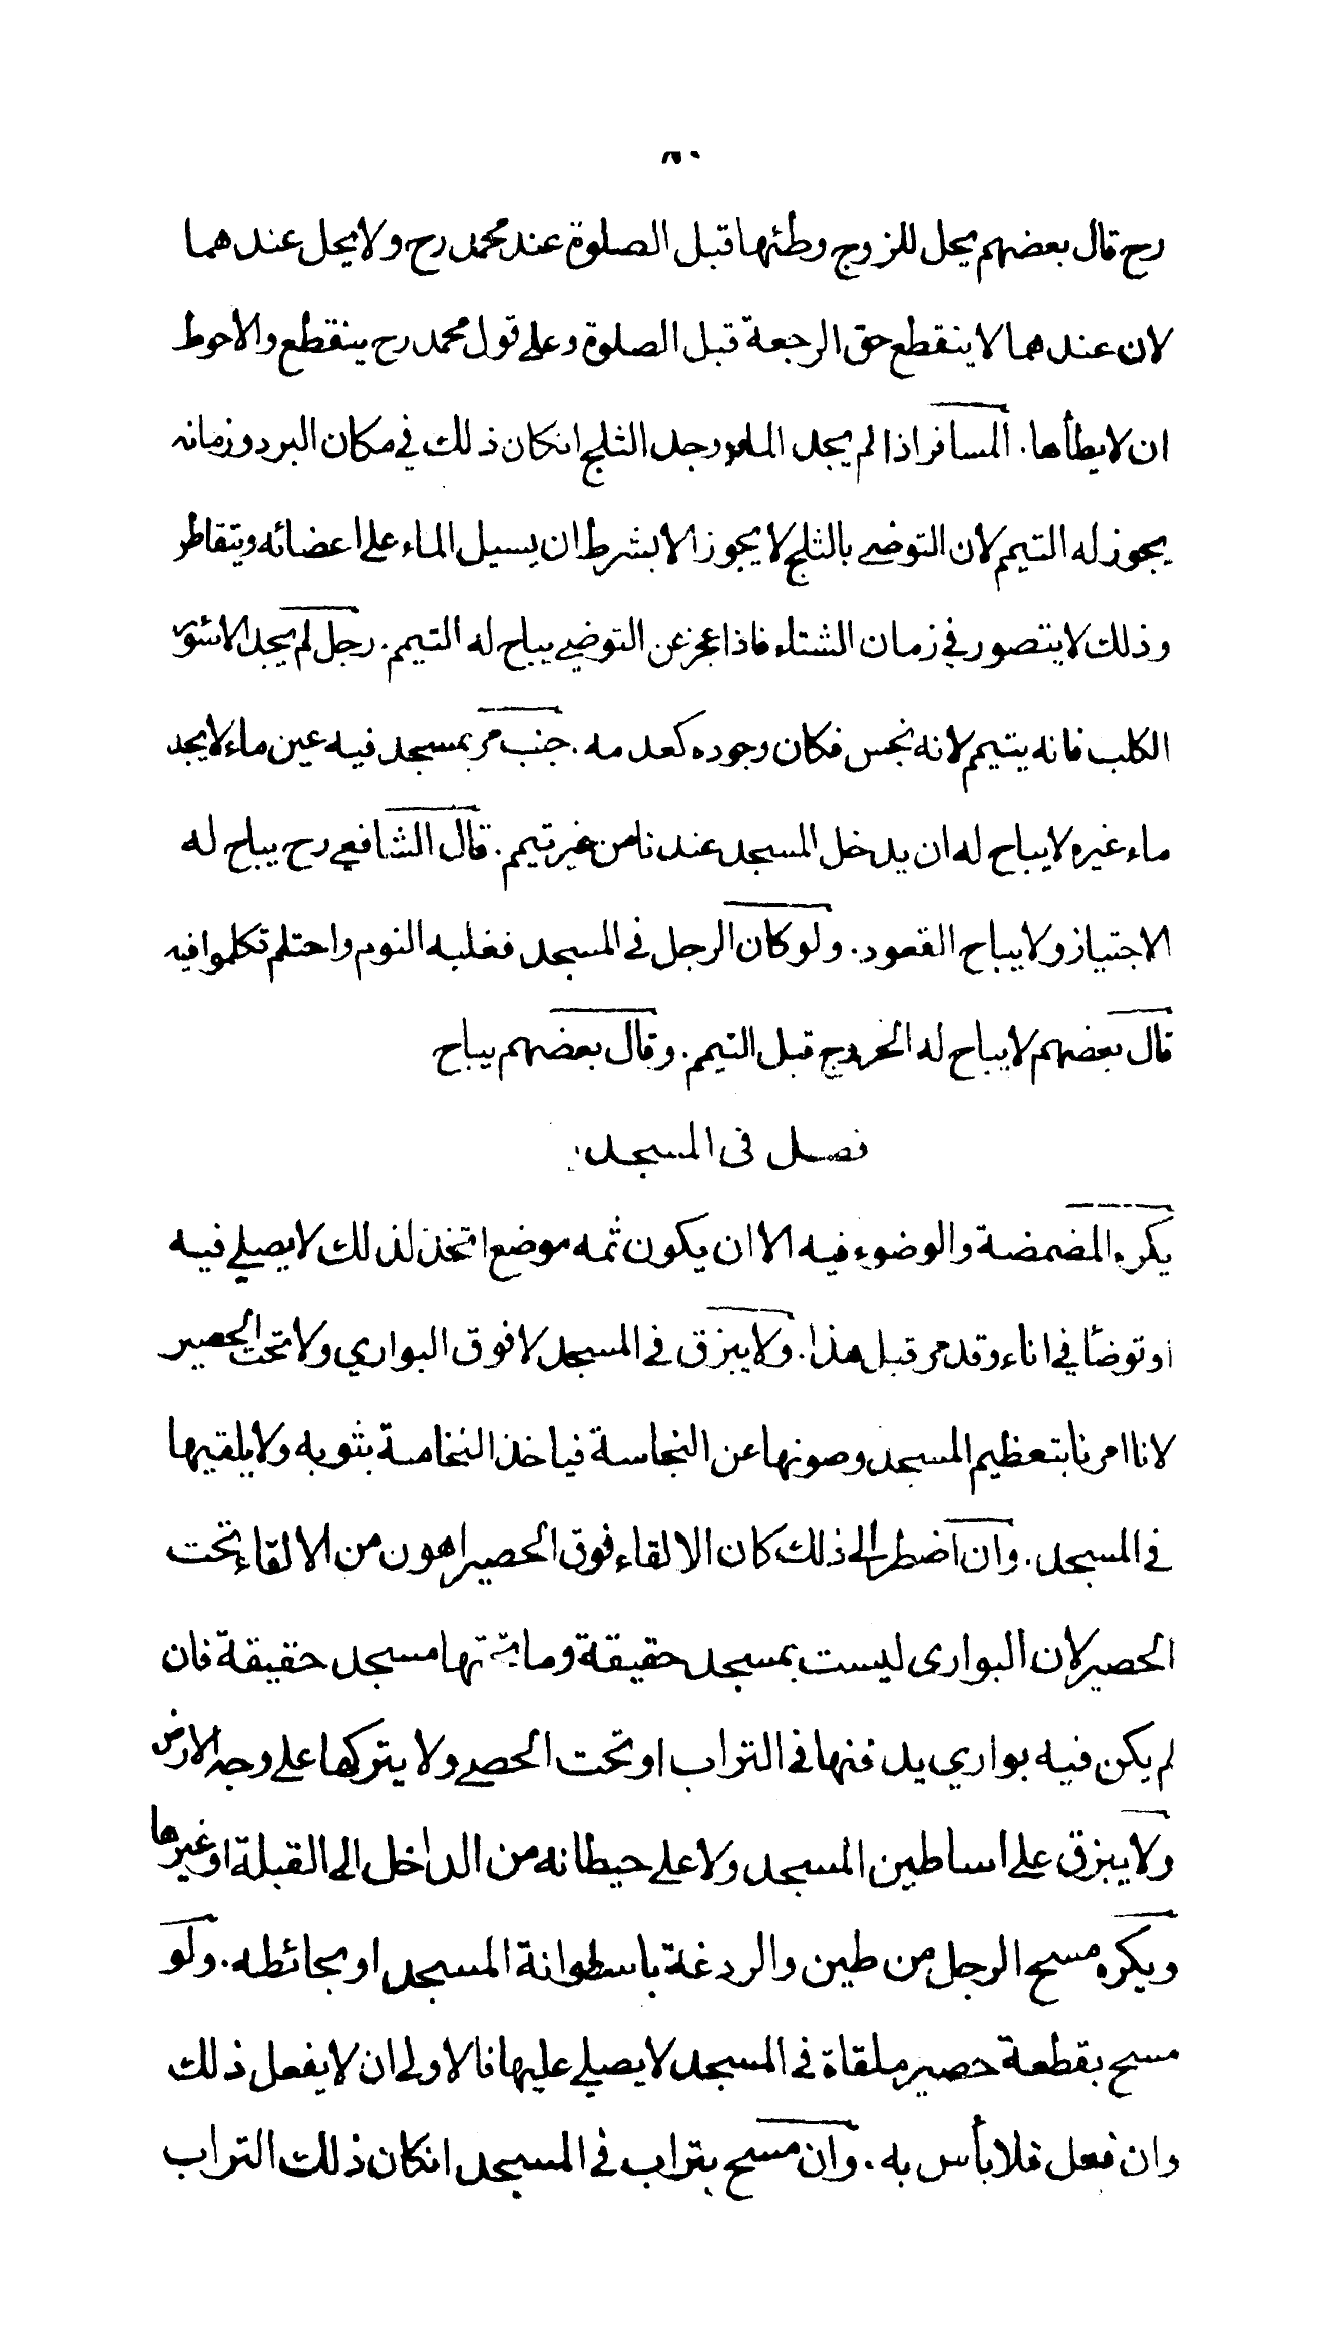 رح قال بعضهم يحل للزوج وطئها قبل الصلوة عند محمد رح ولا يحل عندهما
لان عندهما لا ينقطع حق الرجعة قبل الصلوة وعلى قول محمد رح ينقطع والاحوط
ان لا يطأها. المسافر اذا لم يجد الماء ووجد الثلج انكان ذلك في مكان البرد وزمانه
يجوز له التيمم لان التوضي بالثلج لا يجوز الا بشرط ان يسيل الماء على اعضائه ويتقاطر
وذلك لا يتصور في زمان الشتاء فاذا عجز عن التوضي يباح له التيمم. رجل لم يجد الا سؤر
الكلب فانه يتيمم لانه نجس فكان وجوده كعدمه. جنب مر بمسجد فيه عين ماء لا يجد
ماء غيره لا يباح له ان يدخل المسجد عندنا من غير تيمم. قال الشافعي رح يباح له
الاجتياز ولا يباح القعود. ولو كان الرجل في المسجد فغلبه النوم واحتلم تكلموا فيه
قال بعضهم لا يباح له الخروج قبل التيمم. وقال بعضهم يباح
فصل في المسجد.
يكره المضمضة والوضوء فيه الا ان يكون ثمه موضع اتخذ لذلك لا يصلي فيه
او توضأ في اناء وقد مر قبل هذا. ولا يبزق في المسجد لا فوق البواري ولا تحت الحصير
لانا امرنا بتعظيم المسجد وصونها عن النجاسة فياخذ النخامة بثوبه ولا يلقيها
في المسجد. وان اضطر الى ذلك كان الالقاء فوق الحصير اهون من الالقاء تحت
الحصير لان البواري ليست بمسجد حقيقة وما تحتها مسجد حقيقة فان
لم يكن فيه بواري يدفنها في التراب او تحت الحصى ولا يتركها على وجه الارض
ولا يبزق على اساطين المسجد ولا على حيطانه من الداخل الى القبلة او غيرها
ويكره مسح الرجل من طين والردغة باسطوانة المسجد او بحائطه. ولو
مسح بقطعة حصير ملقاة في المسجد لا يصلي عليها فالاولى ان لا يفعل ذلك
وان فعل فلا بأس به. وان مسح بتراب في المسجد انكان ذلك التراب